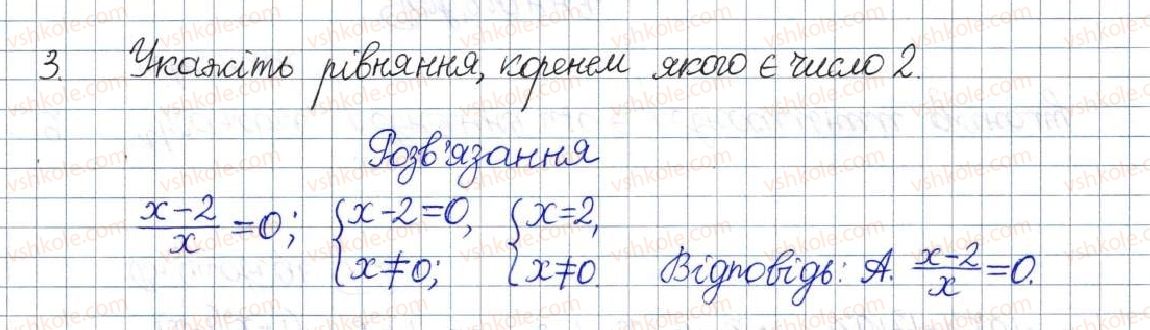 3. Укажіть рівняння, коренем якого є число 2.
Розв'язання
x-2/x=0; {x-2=0, x≠0; {x=2, x≠0. Відповідь: А. x-2/x=0.